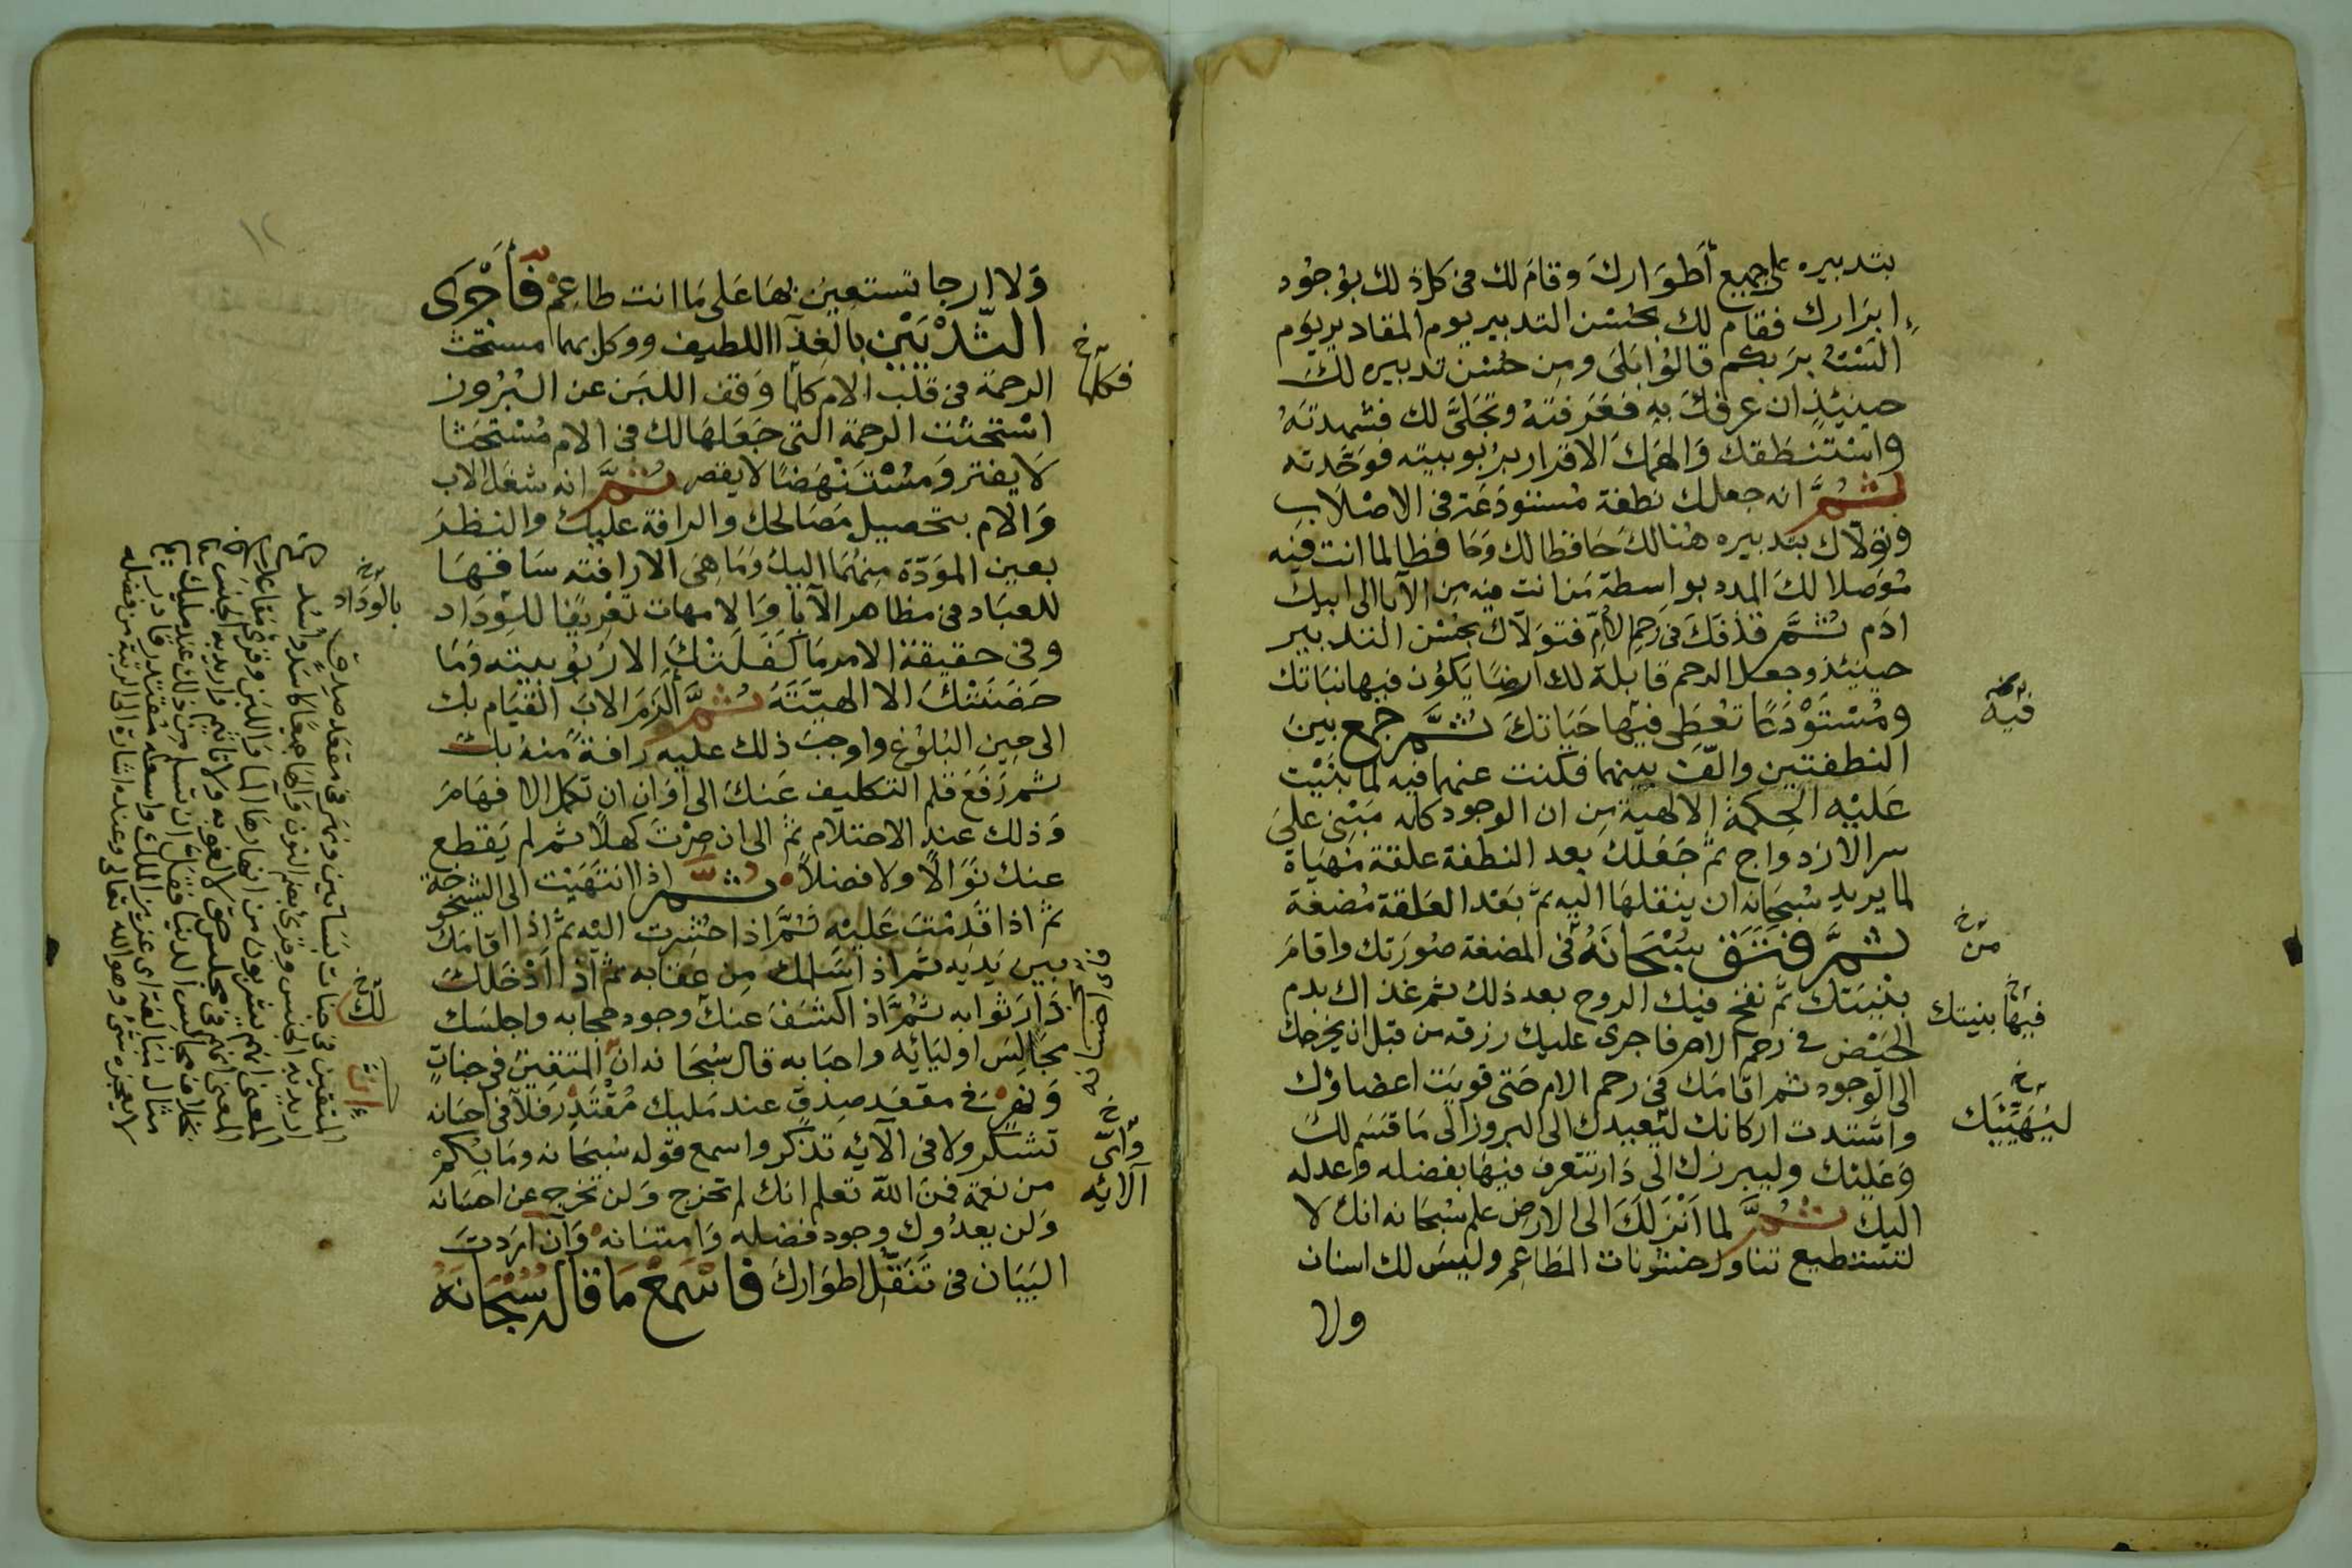 بتدبيره على جميع أطوارك وقام لك في كل ذلك بوجود
ابرارك فقام لك بحسن التدبير يوم المقادير يوم
الست بربكم قالوا بلى ومن حسن تدبيره لك
حينئذ ان عرفك به فعرفته وتجلى لك فشهدته
واستنطقك والهمك الاقرار بربوبيته فوحدته
ثم انه جعلك نطفة مستودعة في الاصلاب
وتولاك بتدبيره هنالك حافظا لك وحافظا لما انت فيه
موصلا لك المدد بواسطة من انت فيه من الآبا الى ابيك
ادم ثم قذفك في رحم الأم فتولاك بحسن التدبير
حينئذ وجعل الرحم قابلة لك أرضا يكون فيها نباتك
ومستودعا تعطى فيها حياتك ثم جمع بين
النطفتين والف بينهما فكنت عنهما فيه لما بنيت
عليه الحكمة الالهية من ان الوجود كله مبنى على
سر الازدواج ثم جعلك بعد النطفة علقة مهياة
لما يريد سبحانه ان ينقلها اليه ثم بعد العلقة مضغة
ثم فتق سبحانه في المضغة صورتك واقام
بنيتك ثم نفخ فيك الروح بعد ذلك ثم غذاك بدم
الحيض في رحم الام فاجرى عليك رزقه من قبل ان يخرجك
الى الوجود ثم اقامك في رحم الام حتى قويت اعضاؤك
واشتدت اركانك ليعبدك الى البروز الى ما قسم لك
وعليك وليبرزك الى دار تتعرف فيها بفضله وعدله
اليك ثم لما انزلك الى الارض علم سبحانه انك لا
تستطيع تناول خشونات المطاعم وليس لك اسنان
ولا
فيه
من خ
فيها بنيتك خ
ليهيئك خ
ولا ارحا تستعين بها على ما انت طاعم فأجرى
الثديين بالغذآ اللطيف ووكل بهما مستحث
الرحمة في قلب الام كلما وقف اللبن عن البروز
استحثت الرحمة التي جعلها لك في الام مستحثا
لا يفتر ومستنهضا لا يقصر ثم انه شغل الاب
والام بتحصيل مصالحك والرافة عليك والنظر
بعين المودة منهما اليك وما هي الا رافته ساقها
للعباد في مظاهر الآبا والامهات تعريفا للوداد
وفي حقيقة الامر ما كفلتك الا ربوبيته وما
حضنتك الا الهيته ثم ألزم الاب القيام بك
الى حين البلوغ واوجب ذلك عليه رافة منه بك
ثم رفع قلم التكليف عنك الى اوان ان تكمل الافهام
وذلك عند الاحتلام ثم الى ان صرت كهلا ثم لم يقطع
عنك نوالا ولا فضلا ثم اذا انتهيت الى الشيخوخة
ثم اذا قدمت عليه ثم اذا حشرت اليه ثم اذا اقامك
بين يديه ثم اذ اسلمك من عقابه ثم اذا ادخلك
دار ثوابه ثم اذ اكشف عنك وجود حجابه واجلسك
مجالس اوليائه واحبابه قال سبحانه ان المتقين في جنات
ونهر في مقعد صدق عند مليك مقتدر فلا في احسانه
تشكر ولا في الآئه تذكر واسمع قوله سبحانه وما بكم
من نعمة فمن الله تعلم انك لم تخرج ولن تخرج عن احسانه
ولن يعدوك وجود فضله وامتنانه وان اردت
البيان في تنقل اطوارك فاسمع ما قال سبحانه
فكلما خ
بالوداد خ
لك خ
فاى احسانه
واى خ
آلائه
المتقين في جنات بساتين ونهر في مقعد صدق
اريد به الجنس وقرئ بضم النون والها جمعا كاسد وأسد
المعنى انهم يشربون من انهارها الما واللبن
المعنى انهم في مجلس حق لا لغو به ولا تاثيم واريد به الجنس
بخلاف مجالس الدنيا فقل ان تسلم من ذلك عند مليك
مثال مبالغة اى عزيز الملك واسعه مقتدر قادر
لا يعجزه شئ وهو الله تعالى وعند اشارة الى الرتبة من فضله